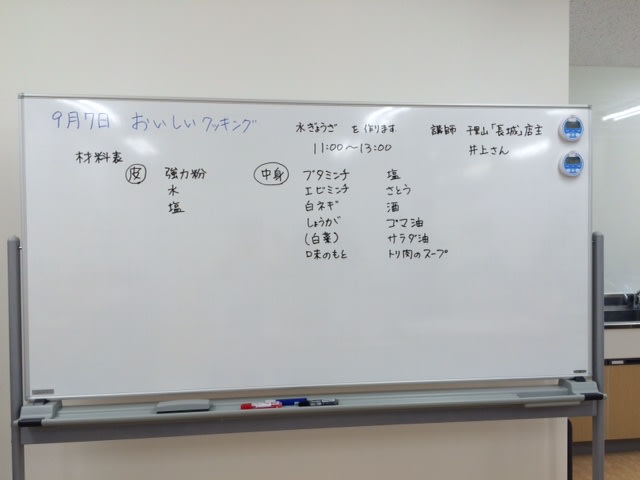 9月7日 おいしいクッキング
水ぎょうざ を 作ります 講師 千里山「長城」店主
11:00～13:00 井上さん
材料表
皮 強力粉 中身 ブタミンチ 塩
水 エビミンチ さとう
塩 白ネギ 酒
しょうが ゴマ油
(白菜) サラダ油
味のもと トリ肉のスープ